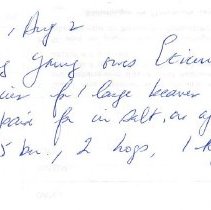 , Aug 2
g Young owes Etienn
for 1 large beaver
paid for in salt, or ag
5 bu., 2 hogs, 1